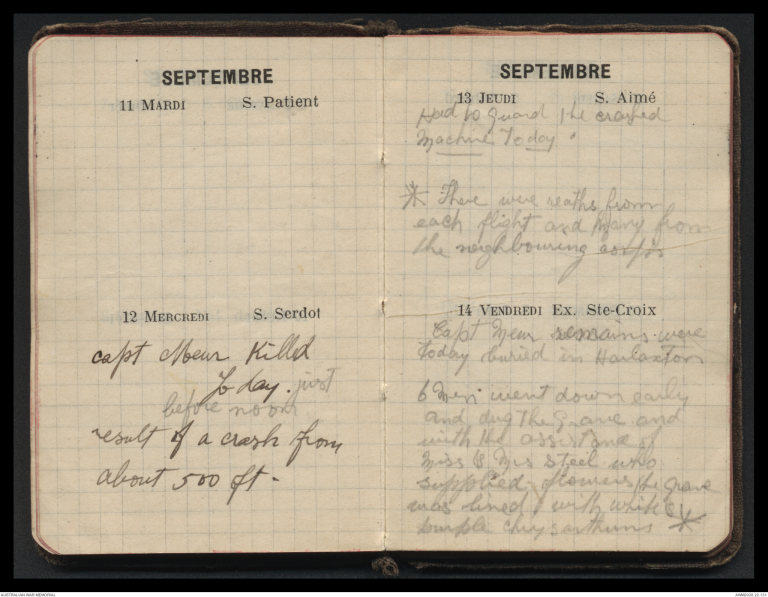 SEPTEMBRE
11 MARDI S. Patient
12 MERCREDI S. Serdot
capt Meur Killed
To day. just
before noon
result of a crash from
about 500 ft.
SEPTEMBRE
13 JEUDI S. Aimé
Had to guard the crashed
Machine Today.
* There were reaths from
each flight and many from
the neighbouring
14 VENDREDI Ex. Ste-Croix
Capt Meur remains were
Today buried in Harlaxton
6 Men went down early
and dug the Grave and
with the assistance of
Miss & Mrs Steel who
supplied flowers the grave
was lined with white &
purple chrysanthums *
AUSTRALIAN WAR MEMORIAL